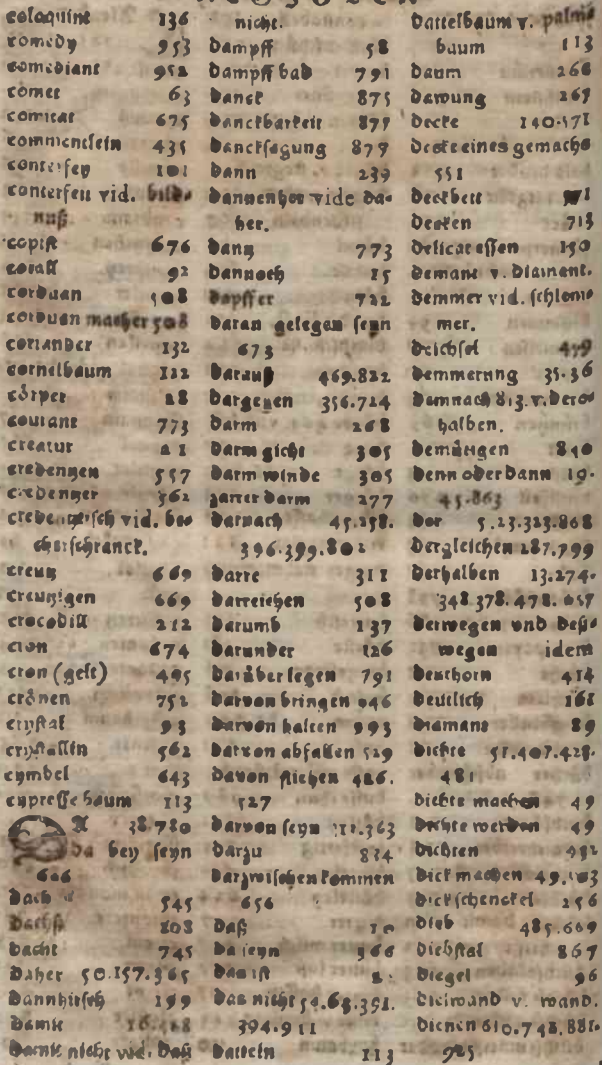 coloquint 136
comedy 953
comediant 952
comet 63
comitat 675
commentlein 435
conterfey 101
conterfeit vid. bild-
nuß
copist 676
corall 92
corduan 508
corduan macher 508
coriander 132
cornelbaum 122
cörper 28
courant 773
creatur 21
credentzen 557
credentzer 362
creutz 669
creutzigen 669
crocodill 212
cron 674
cron (gelt) 495
crönen 752
crystal 93
crystallin 562
cymbel 643
cypresse baum 113
DA 38.780
da bey seyn
606
dach 545
dachß 208
dacht 745
daher 50.157.365
dannhirsch 199
damit
damit nicht vid. daß
nicht.
dampff 58
dampff bad 791
danck 875
danckbarkeit 877
dancksagung 877
dann 239
dannenher vide da-
her.
dantz 773
dannoch 15
dapffer 722
daran gelegen seyn
673
darauß 469.822
dargegen 356.724
darm 268
darm gicht 305
darm winde 305
zarter darm 277
darnach 45.258.
396.399.802
darre 311
darreichen 508
darumb 137
darunder 126
darüber legen 791
darvon bringen 946
darvon halten 993
darvon abfallen 529
davon fliehen 426.
527
darvon seyn 363
darzu 824
darzwischen kommen
656
daß 10
da seyn 366
das ist
das nicht 54.68.391.
394.911
datteln 113
dattelbaum v. palm-
baum 113
daum 266
dawung 267
decke 140.571
decke eines gemachs
551
deckbett
decken 713
delicat essen 150
demant v. diamant.
demmer vid. schlem-
mer.
deichsel 479
demmerung 35.36
demnach 813. v. dero-
halben.
demütigen 840
denn oder dann 19.
45.863
der 5.23.323.868
dergleichen 287.799
derhalben 13.274.
348.378.478.657
derwegen vnd deß-
wegen idem
deuchorn 414
deutlich 168
diamant 89
dichte 51.407.428.
481
dichte machen 49
dichte werden 49
dichten 932
dick machen 49.
dickschenckel 256
dieb 485.669
diebstal 867
diegel 96
dielwand v. wand.
dienen 610.742.881.
925